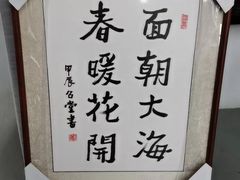 面朝大海
春暖花開
甲辰名堂書